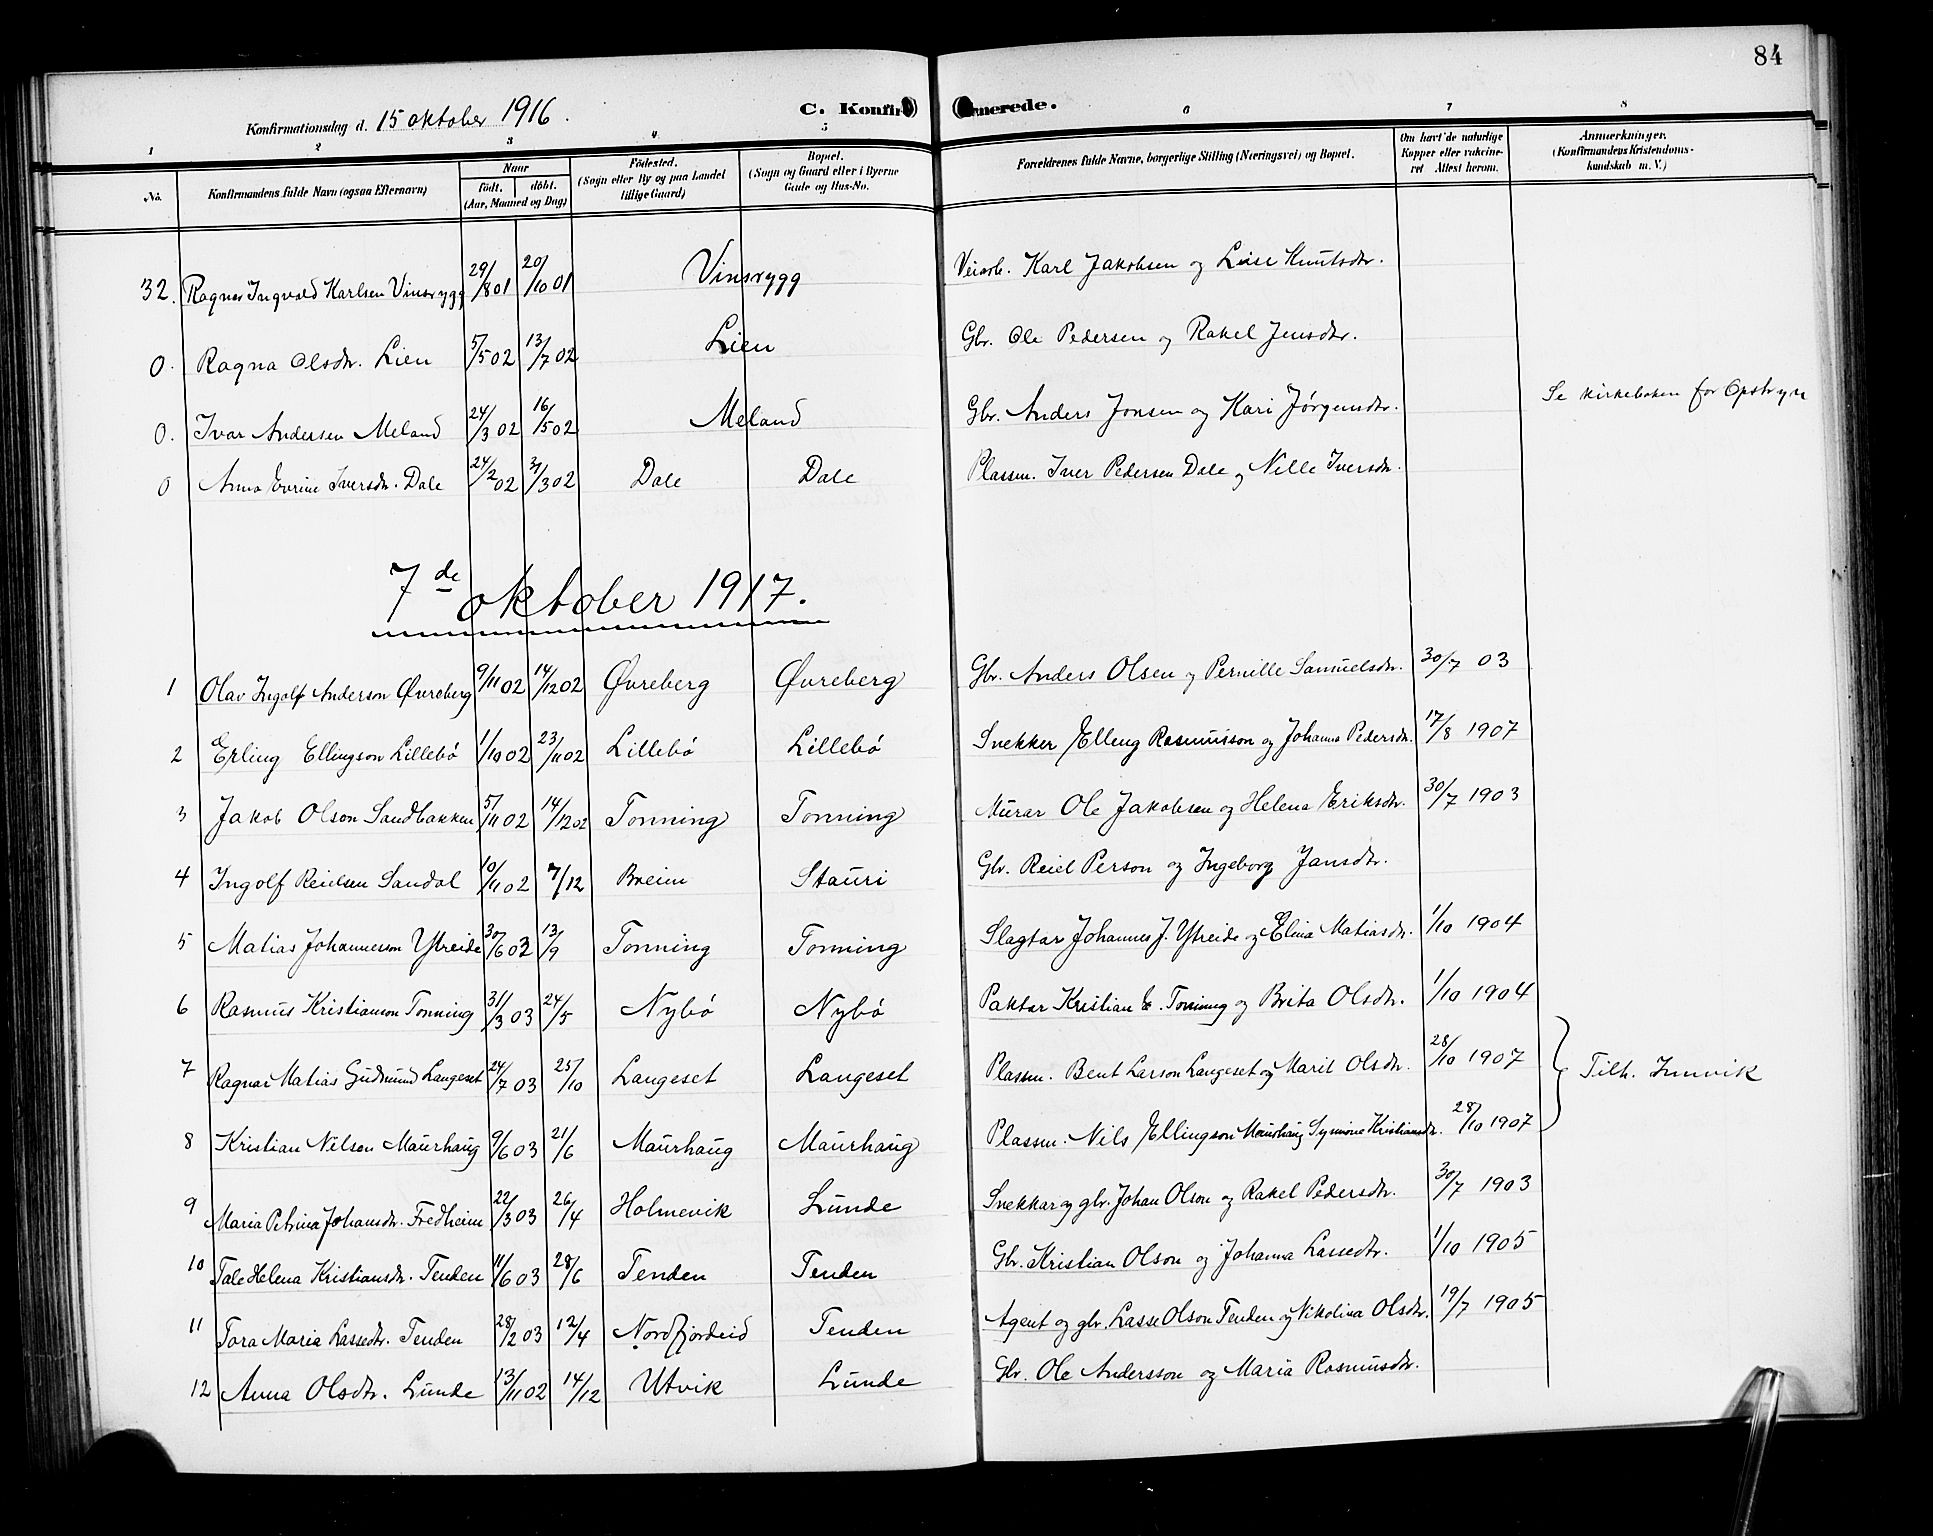 84
Konfirmationsdag d. 15 oktober 1916.
C. Konfirmerede.
1 2 3 4 5 6 7 8
No. Konfirmandens fulde Navn (ogsaa Efternavn) Naar født, døbt. (Aar, Maaned og Dag) Fødested. (Sogn eller By og paa Landet tillige Gaard) Bopæl. (Sogn og Gaard eller i Byerne Gade og Hus-No. Forældrenes fulde Navne, borgerlige Stilling (Næringsvei) og Bopæl. Om havt de naturlige Kopper eller vakcineret Attest herom. Anmærkninger. (Konfirmandens Kristendomskundskab m. V.)
32. Ragnar Ingvald Karlsen Vinsrygg 29/8 01 20/10 01 Vinsrygg Veiarb. Karl Jakobsen og Lise Knutsdtr.
0. Ragna Olsdtr. Lien 5/5 02 13/7 02 Lien Gbr. Ole Pedersen og Rakel Jensdtr.
0. Ivar Andersen Meland 24/3 02 16/5 02 Meland Gbr. Anders Jonsen og Kari Jørgensdtr. Se kirkeboken for Opstryn
0 Anna Iversdtr. Dale 24/2 02 31/3 02 Dale Dale Plassm. Iver Pedersen Dale og Nille Iversdtr.
7de oktober 1917.
1 Olav Ingolf Anderson Øvreberg 9/11 02 14/12 02 Øvreberg Øvreberg Gbr. Anders Olsen og Pernille Samuelsdtr. 30/7 03
2 Erling Ellingson Lillebø 1/10 02 23/11 02 Lillebø Lillebø Snekker Elling Rasmusson og Johanna Pedersdtr. 17/8 1907
3 Jakob Olson Sandbakken 5/11 02 14/12 02 Tonning Tonning Murar Ole Jakobsen og Helena Eriksdtr. 30/7 1903
4 Ingolf Reielsen Sandal 10/11 02 7/12 Breim Stauri Gbr. Reiel Person og Ingeborg Jansdtr.
5 Matias Johannesson Ytreide 30/6 03 13/9 Tonning Tonning Slagtar Johannes J. Ytreide og Elina Matiasdtr. 1/10 1904
6 Rasmus Kristianson Tonning 31/3 03 24/5 Nybø Nybø Paktar Kristian E. Tonning og Brita Olsdtr. 1/10 1904
7 Ragnar Matias Gudmund Langeset 24/7 03 25/10 Langeset Langeset Plassm. Bent Larson Langeset og Marit Olsdtr. 28/10 1907 Tilh. Innvik
8 Kristian Nilson Maurhaug 9/6 03 21/6 Maurhaug Maurhaug Plassm. Nils Ellingson Maurhaug Symione Kristiansdtr. 28/10 1907
9 Maria Petrina Johansdtr. Fredheim 22/3 03 26/4 Holmevik Lunde Snekkar og gbr. Johan Olson og Rakel Pedersdtr. 30/7 1903
10 Tale Helena Kristiansdtr. Tenden 11/6 03 28/6 Tenden Tenden Gbr. Kristian Olson og Johanna Lassedtr. 1/10 1905
11 Tora Maria Lassedtr. Tenden 28/2 03 12/4 Nordfjordeid Tenden Agent og gbr. Lasse Olson Tenden og Nikolina Olsdtr. 19/7 1905
12 Anna Olsdtr. Lunde 13/11 02 14/12 Utvik Lunde Gbr. Ole Andersson og Maria Rasmusdtr.